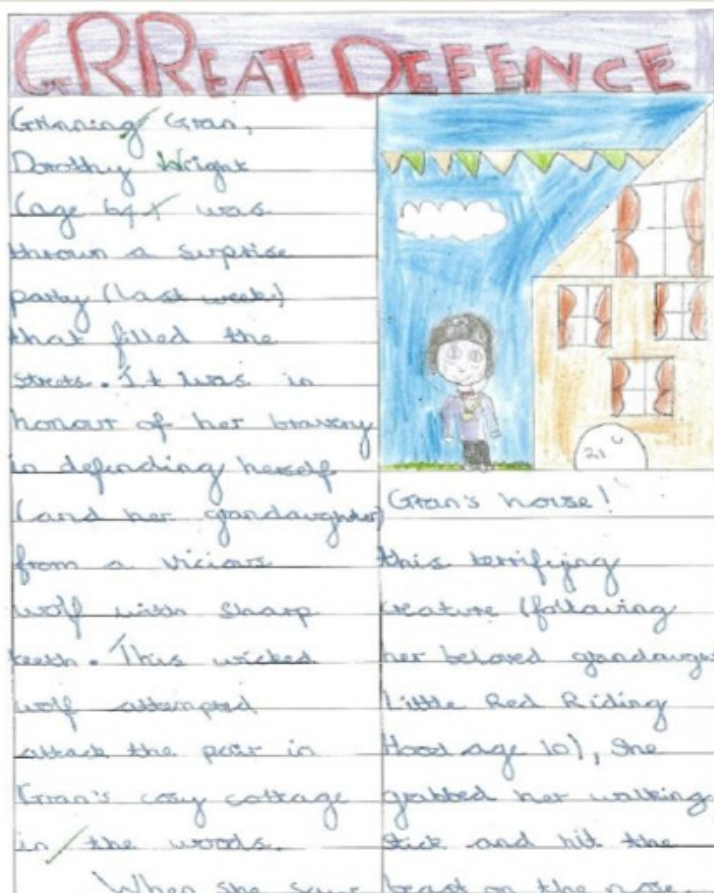 GRREAT DEFENCE
Grinning Gran,
Dorothy Wright
(age 64) was
thrown a surprise
party (last week)
that filled the
streets. It was in
honour of her bravery
in defending herself
(and her grandaughter)
from a vicious
wolf with sharp
teeth. This wicked
wolf attempted
attack the pair in
Gran's cosy cottage
in the woods.
When she saw
21
Gran's house!
this terrifying
creature (following
her beloved grandaugh
Little Red Riding
Hood age 10), she
grabbed her walking
stick and hit the
beast on the nose.